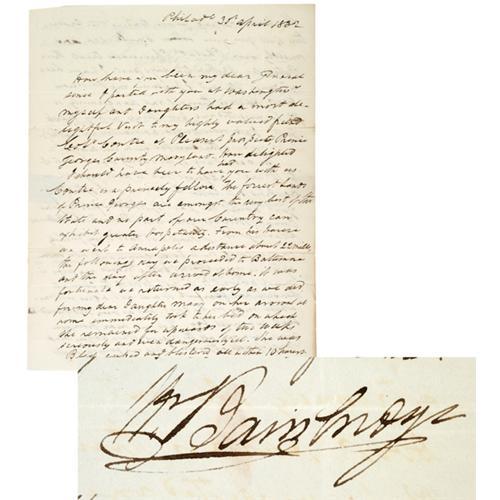 Philada. 30 april 1832
How have you been my dear General
since I parted with you at Washington
myself and Daughters had a most de-
lightful Visit to my highly valued friend
Contee at Pleasant Prospect Prince
Georges County Maryland. How delighted
I should have been to have had you with us
Contee is a princely fellow. The forest lands
Prince Georges are amongst the very best of the
State and no part of our Country can
exhibit greater hospitality. From his house
we went to Annapolis a distance about 22 miles
the following day we proceeded to Baltimore
and the day after arrived at home. It was
fortunate we returned as early as we did
for my dear Daughter Mary on her arrival at
home immediately took to her bed on which
she remained for upwards of two weeks
seriously and even dangerously ill. She was
Bled, cupped and blistered all within 13 hours.
Wm Bainbridge